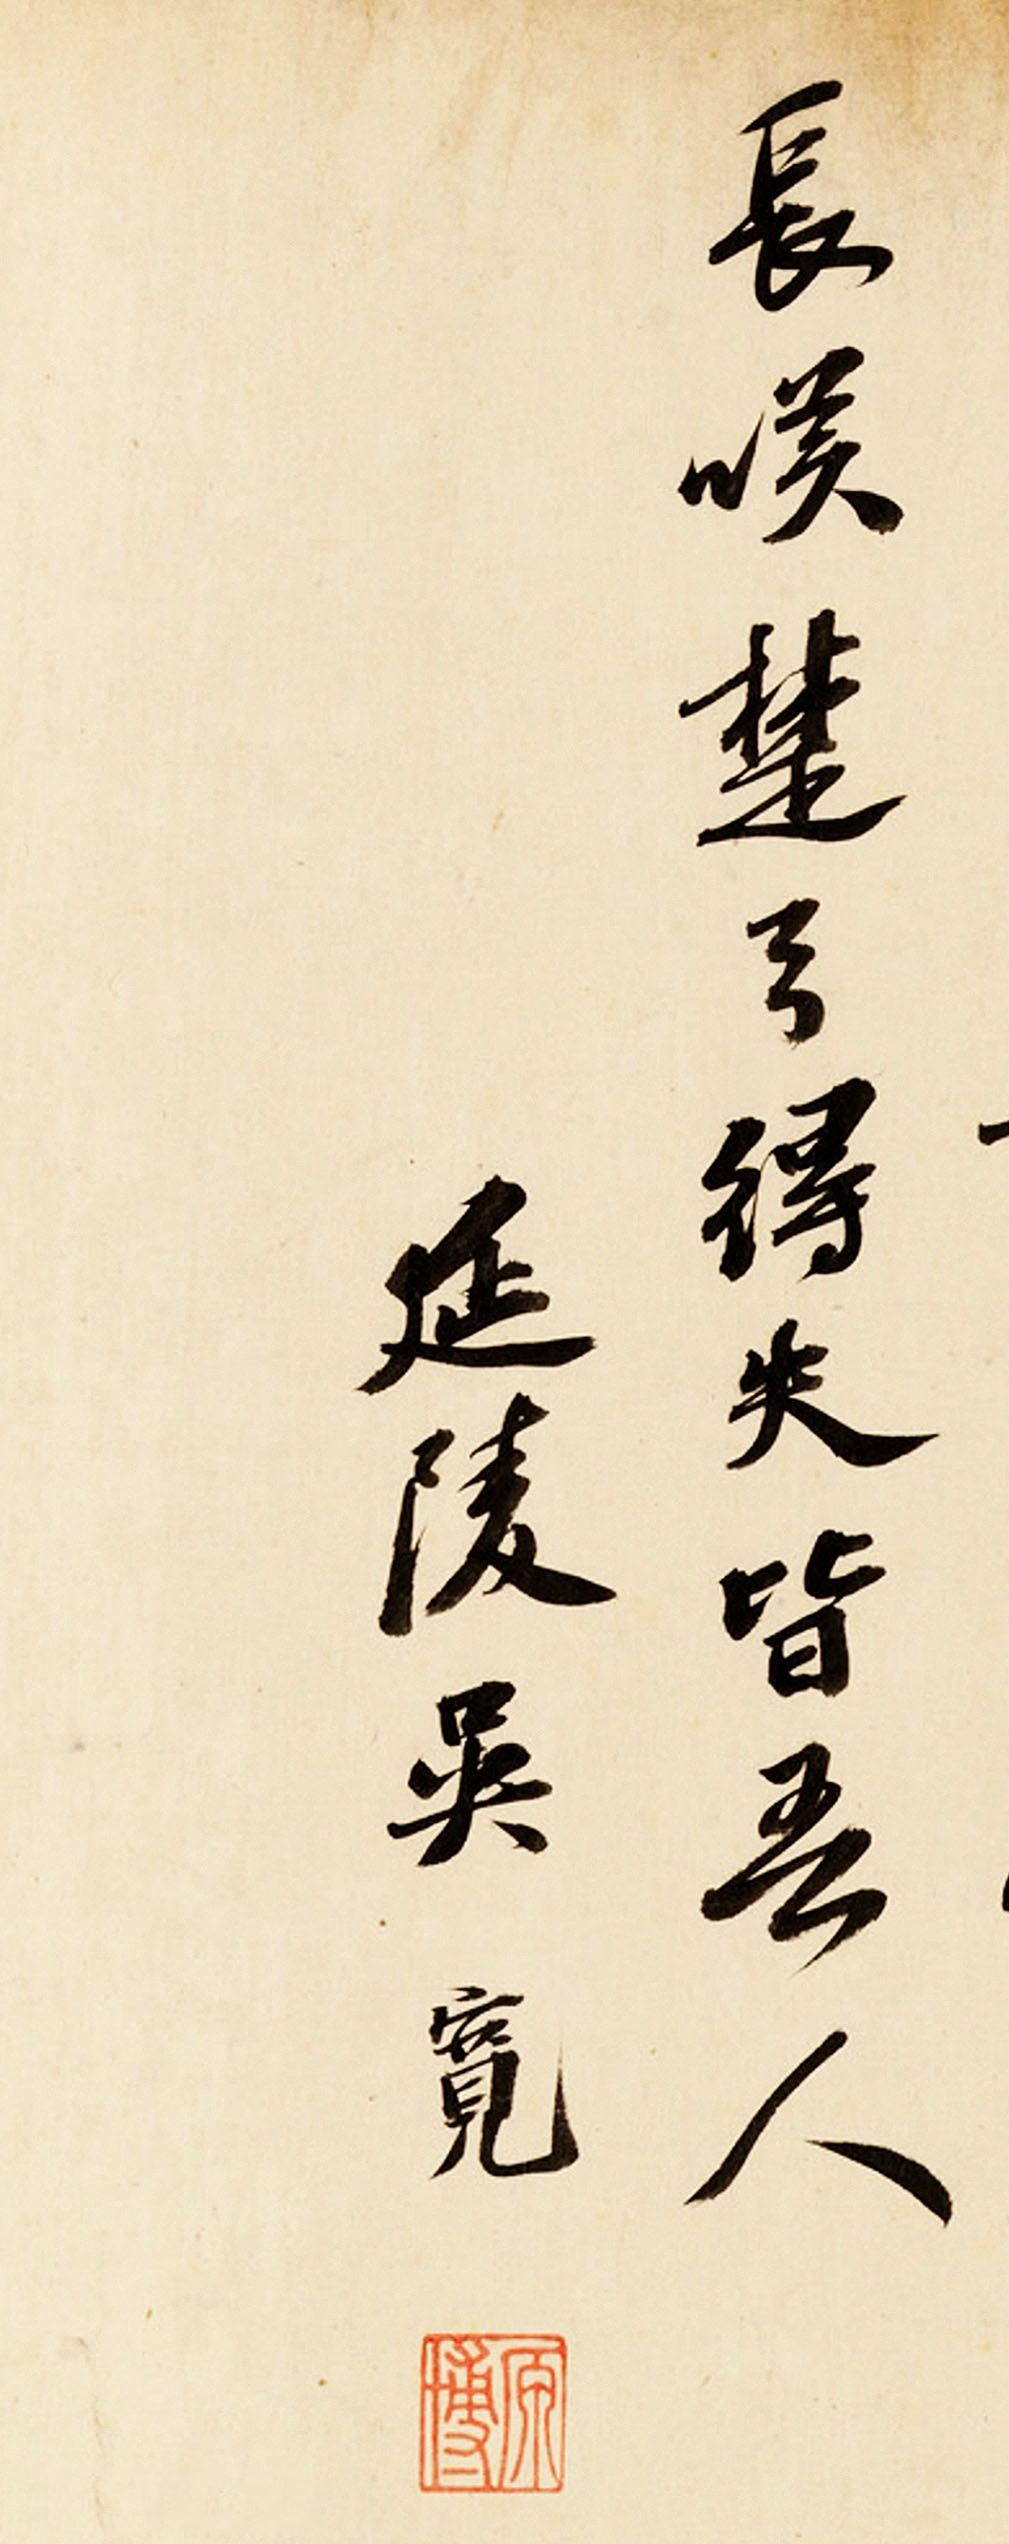 長咲楚弓得失皆吾人
延陵吳寬
原博